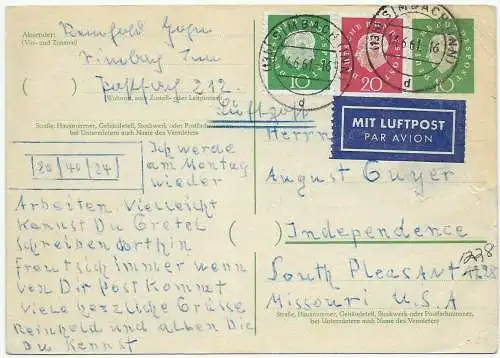 Absender:
(Vor- und Zuname)
Reinhold
Postfach 212
(Wohnort, auch Zustell- oder Leitpostamt)
Straße, Hausnummer, Gebäudeteil, Stockwerk oder Postfachnummer,
bei Untermietern auch Name des Vermieters
20/40/24
Ich werde
am Montag
wieder
Arbeiten. Vielleicht
kannst Du Gretel
schreiben dorthin
freut sich immer wenn
von Dir Post kommt
viele herzliche Grüsse
Reinhold und allen Die
Du Kennst
DEUTSCHE BUNDESPOST
10
20
10
14.6.61-16
d
14.6.61-16
d
Luftpost
MIT LUFTPOST
PAR AVION
Herrn
August Guyer
Independence
South Pleasant 1228
Missouri U.S.A
Straße, Hausnummer, Gebäudeteil, Stockwerk oder Postfachnummer,
bei Untermietern auch Name des Vermieters